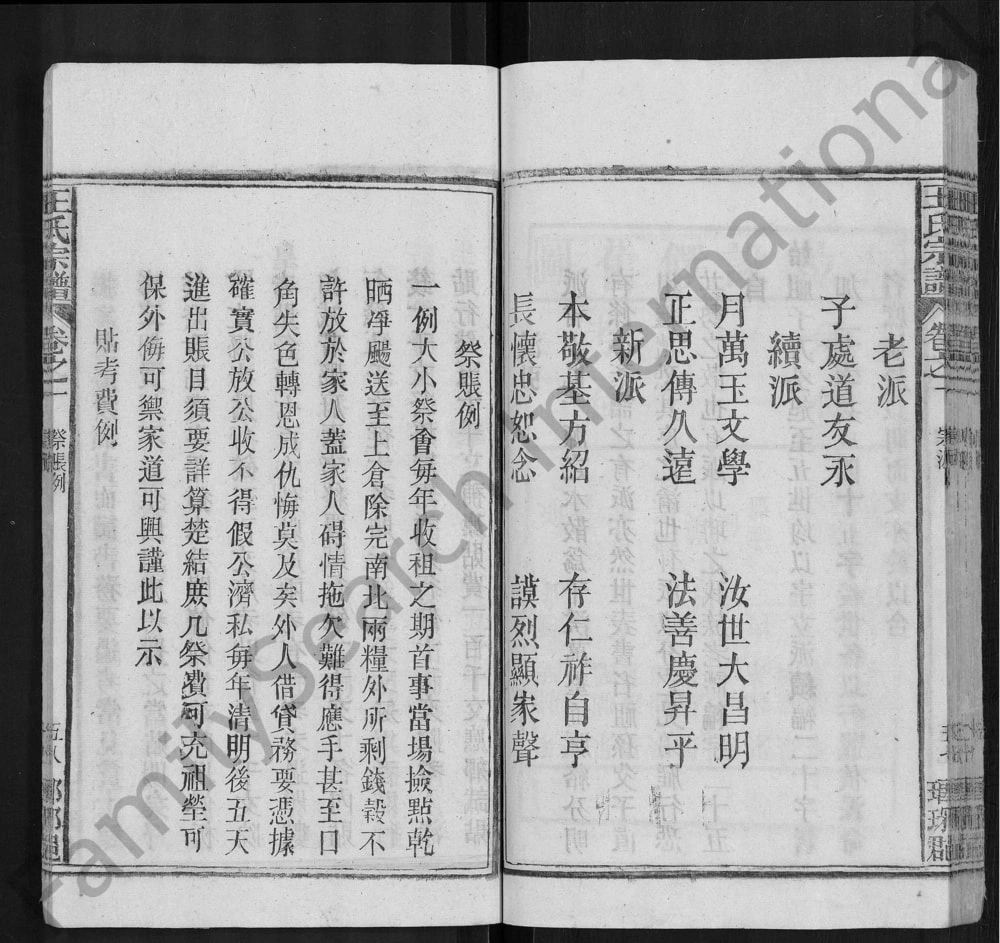 王氏宗譜
卷之一
宗派
瑯琊郡
老派
子處道友永
續派
月萬玉文學 汝世大昌明
正思傳久遠 法善慶昇平
新派
本敬基方紹 存仁祚自亨
長懷忠恕念 謨烈顯家聲
祭賬例
一例大小祭會每年收租之期首事當場撿點乾
晒淨颺送至上倉除完南北兩糧外所剩錢穀不
許放於家人蓋家人碍情拖欠難得應手甚至口
角失色轉恩成仇悔莫及矣外人借貸務要憑據
確實公放公收不得假公濟私每年清明後五天
進出賬目須要詳算楚結庶几祭費可充祖塋可
保外侮可禦家道可興謹此以示
貼考費例
王氏宗譜
卷之一
祭賬例
五八
瑯琊郡
FamilySearch International